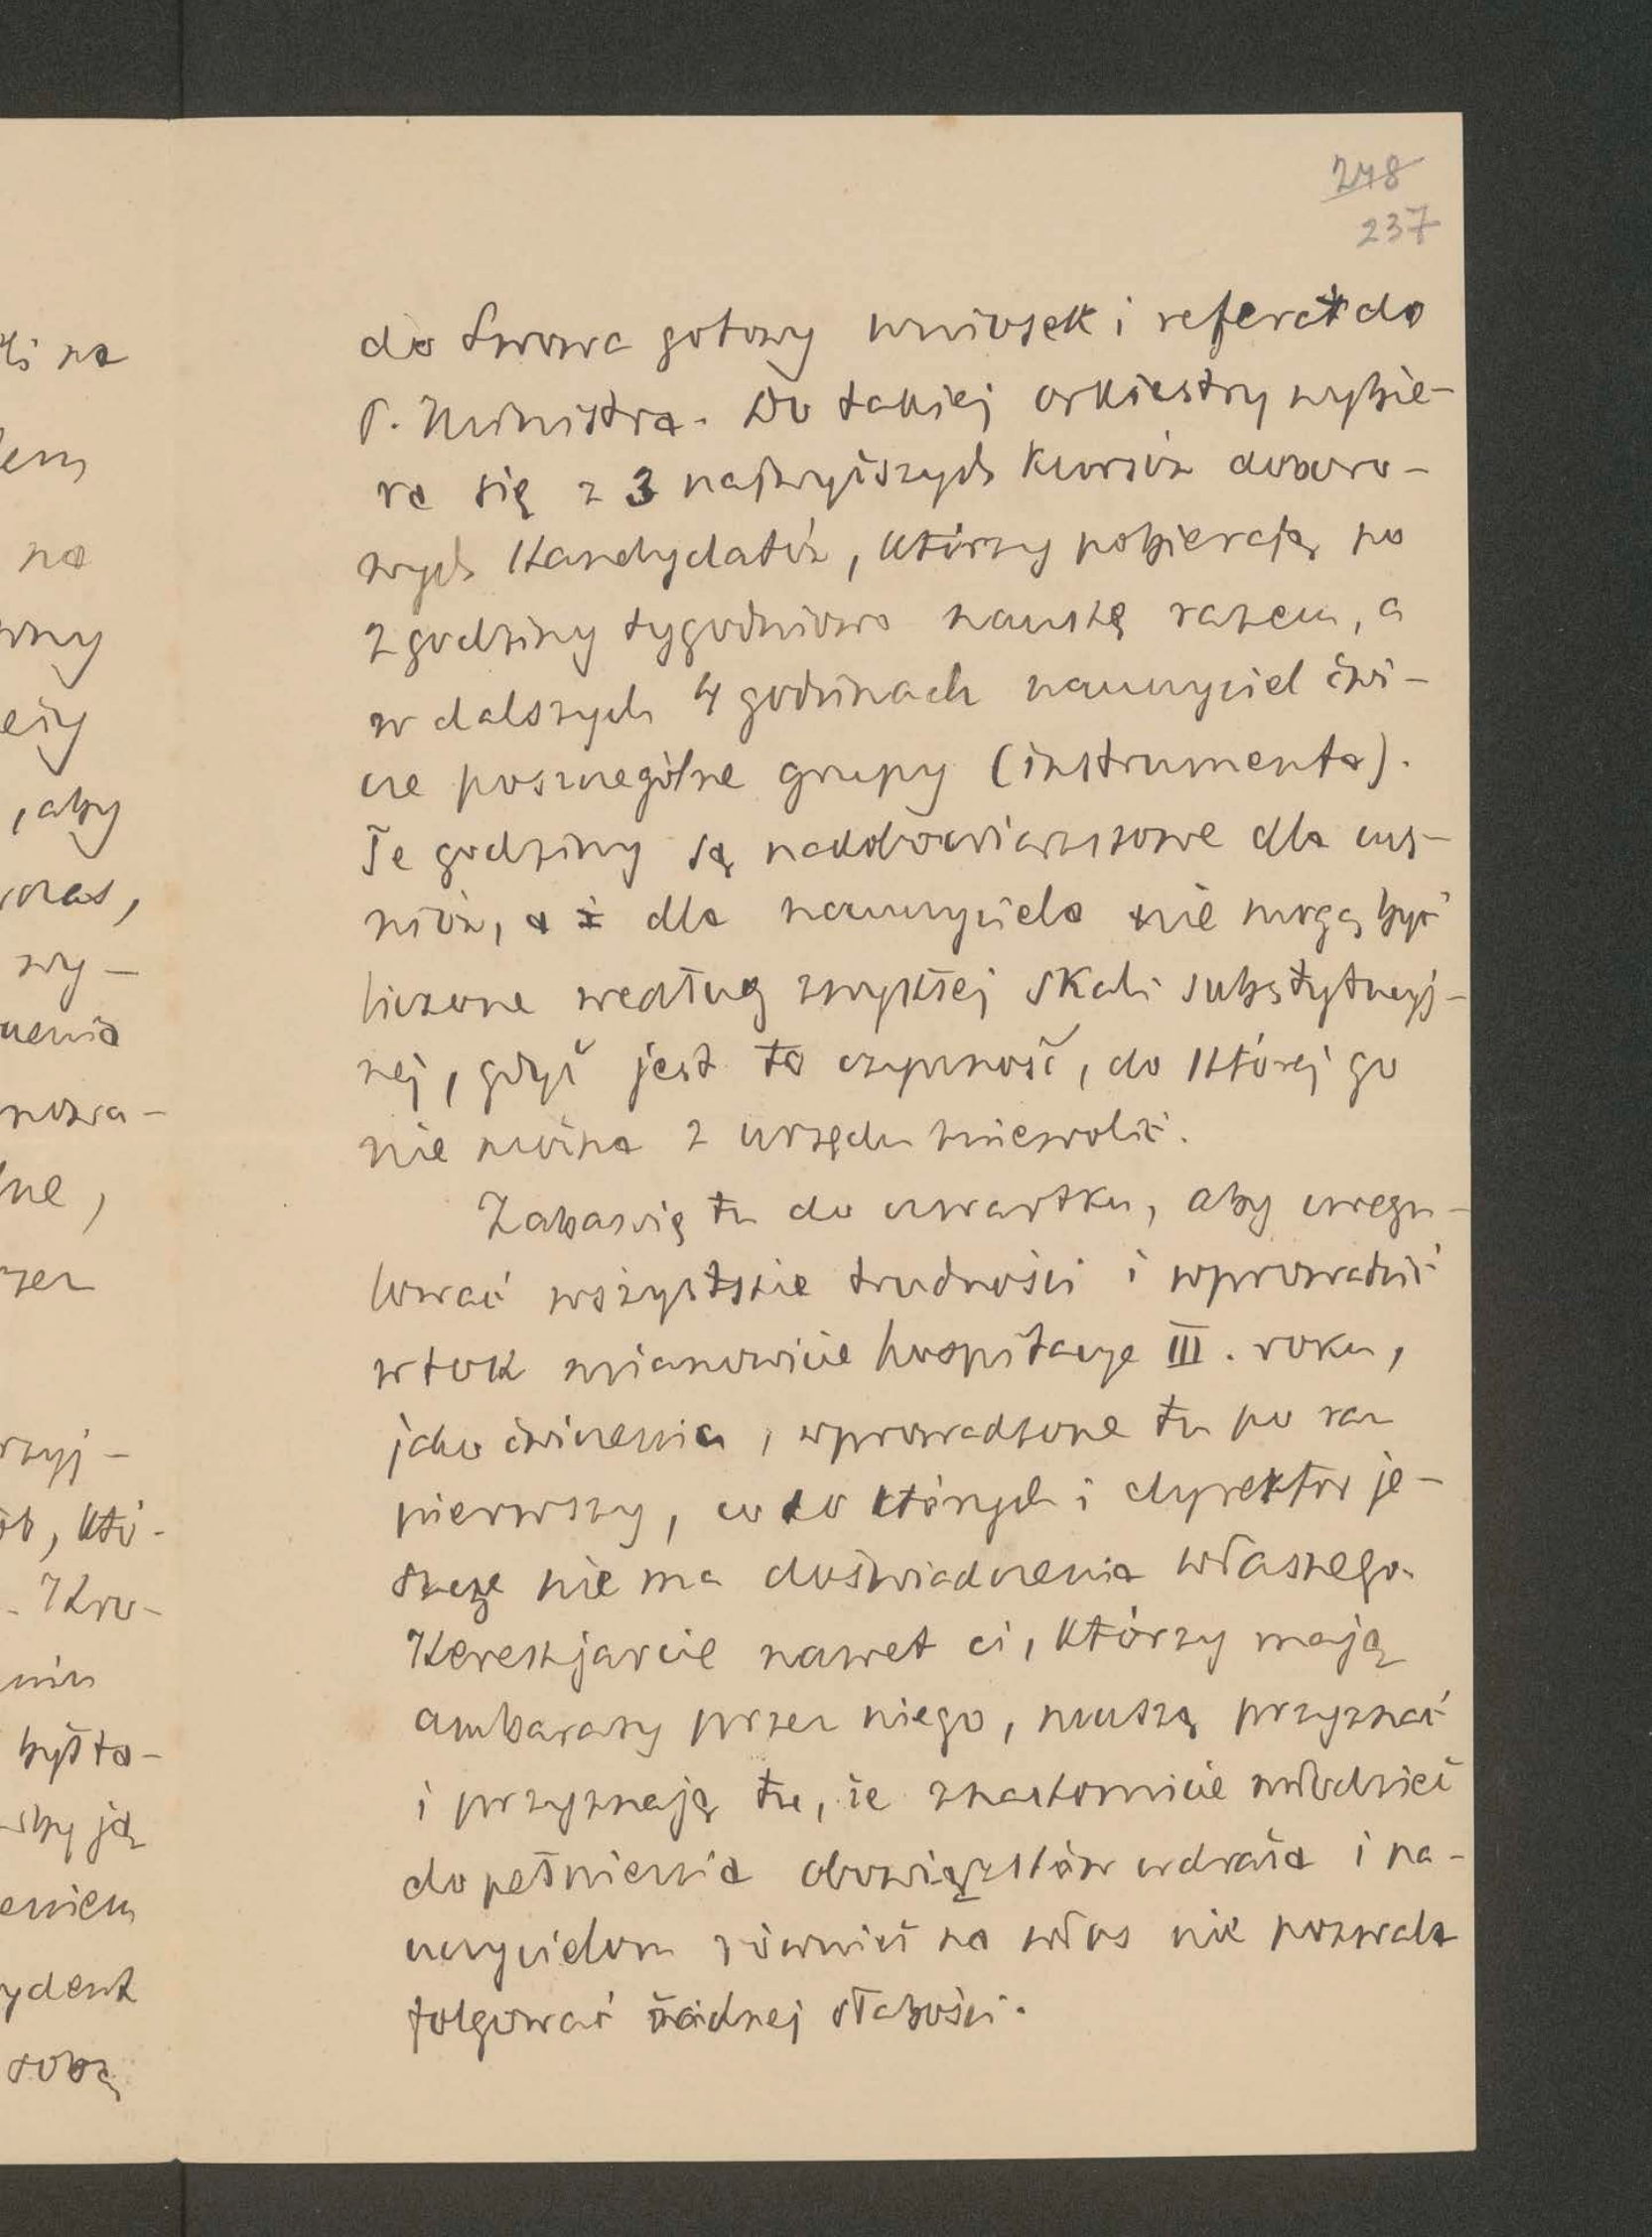 li na
em
na
wny
eży
, aby
czas,
wy-
nowa-
lne,
rzyj-
ób, któ-
. Kro-
niu
było-
aby ją
eniem
ydent
sobą
248
237
do Lwowa gotowy wniosek i referat do
P. Ministra. Do takiej orkiestry wybie-
ra się z 3 najwyższych kursów doboro-
wych kandydatów, którzy pobierają po
2 godziny tygodniowo naukę razem, a
w dalszych 4 godzinach nauczyciel ćwi-
cze poszczególne grupy (instrumenta).
Te godziny są nadobowiązkowe dla ucz-
niów, a i dla nauczyciela nie mogą być
liczone według zwykłej skali substytucyj-
nej, gdyż jest to czynność, do której go
nie można z urzędu zniewolić.
Zabawię tu do czwartku, aby uregu-
lować wszystkie trudności i wprowadzić
w tok mianowicie hospitacye III. roku,
jako ćwiczenia, wprowadzone tu po raz
pierwszy, co do których i dyrektor je-
szcze nie ma doświadczenia własnego.
Kerekjarcie nawet ci, którzy mają
ambarasy przez niego, muszą przyznać
i przyznają tu, że znakomicie młodzież
do pełnienia obowiązków wdraża i na-
uczycielom również na włos nie pozwala
folgować żadnej słabości.